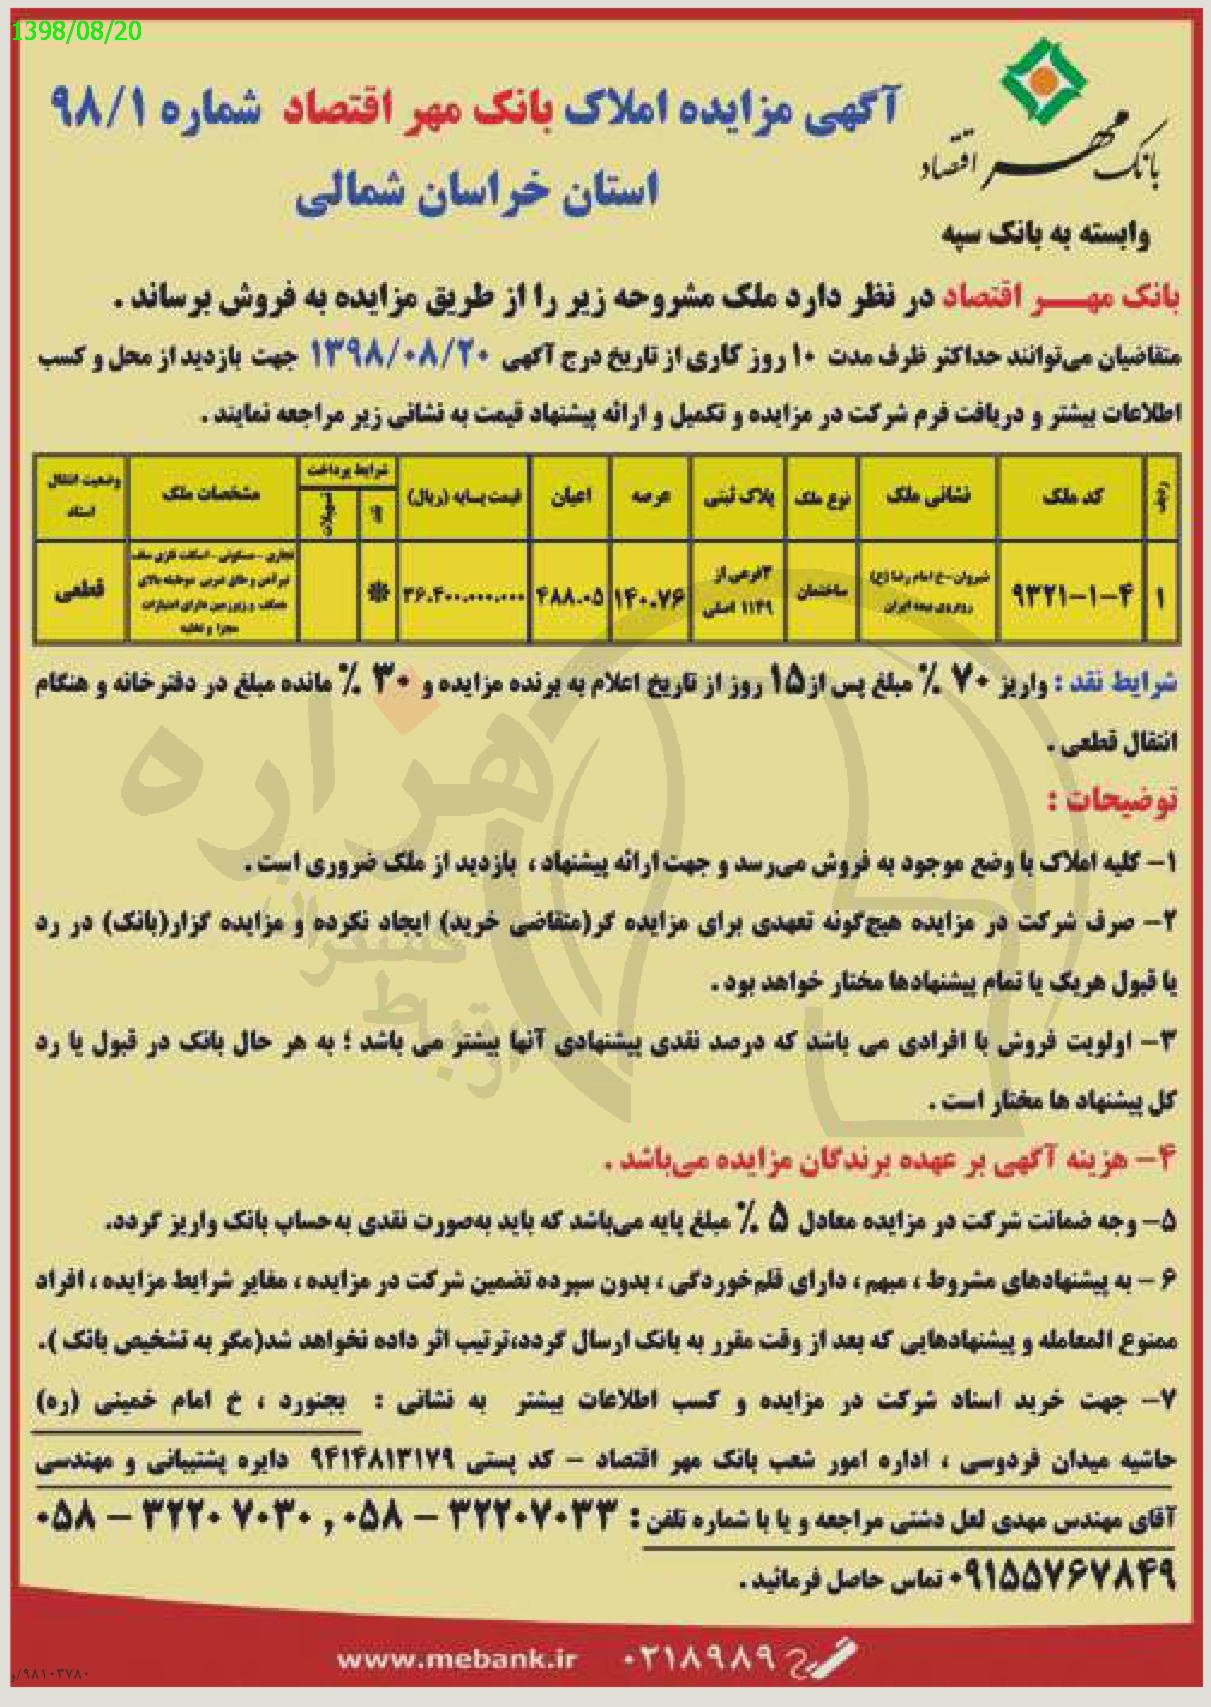 1398/08/20
بانک مهر اقتصاد
وابسته به بانک سپه
آگهی مزایده املاک بانک مهر اقتصاد شماره ۹۸/۱
استان خراسان شمالی
بانک مهـــر اقتصاد در نظر دارد ملک مشروحه زیر را از طریق مزایده به فروش برساند .
متقاضیان می‌توانند حداکثر ظرف مدت ۱۰ روز کاری از تاریخ درج آگهی ۱۳۹۸/۰۸/۲۰ جهت بازدید از محل و کسب
اطلاعات بیشتر و دریافت فرم شرکت در مزایده و تکمیل و ارائه پیشنهاد قیمت به نشانی زیر مراجعه نمایند .
ردیف کد ملک نشانی ملک نوع ملک پلاک ثبتی عرصه اعیان قیمت پـایه (ریال) شرایط پرداخت نقد تسهیلات مشخصات ملک وضعیت انتقال اسناد
۱ ۹۳۲۱-۱-۴ شیروان-خ امام رضا (ع) روبروی بیمه ایران ساختمان ۳فرعی از ۱۱۴۹ اصلی ۱۴۰.۷۶ ۴۸۸.۰۵ ۳۶.۴۰۰.۰۰۰.۰۰۰ * تجاری - مسکونی - اسکلت فلزی سقف تیرآهن و طاق ضربی دوطبقه بالای همکف و زیرزمین دارای امتیازات مجزا و تخلیه قطعی
شرایط نقد : واریز ۷۰ % مبلغ پس از ۱۵ روز از تاریخ اعلام به برنده مزایده و ۳۰ % مانده مبلغ در دفترخانه و هنگام
انتقال قطعی .
توضیحات :
۱- کلیه املاک با وضع موجود به فروش می‌رسد و جهت ارائه پیشنهاد ، بازدید از ملک ضروری است .
۲- صرف شرکت در مزایده هیچ‌گونه تعهدی برای مزایده گر(متقاضی خرید) ایجاد نکرده و مزایده گزار(بانک) در رد
یا قبول هریک یا تمام پیشنهادها مختار خواهد بود .
۳- اولویت فروش با افرادی می باشد که درصد نقدی پیشنهادی آنها بیشتر می باشد ؛ به هر حال بانک در قبول یا رد
کل پیشنهاد ها مختار است .
۴- هزینه آگهی بر عهده برندگان مزایده می‌باشد .
۵- وجه ضمانت شرکت در مزایده معادل ۵ % مبلغ پایه می‌باشد که باید به‌صورت نقدی به‌حساب بانک واریز گردد.
۶ - به پیشنهادهای مشروط ، مبهم ، دارای قلم‌خوردگی ، بدون سپرده تضمین شرکت در مزایده ، مغایر شرایط مزایده ، افراد
ممنوع المعامله و پیشنهادهایی که بعد از وقت مقرر به بانک ارسال گردد،ترتیب اثر داده نخواهد شد(مگر به تشخیص بانک ).
۷- جهت خرید اسناد شرکت در مزایده و کسب اطلاعات بیشتر به نشانی : بجنورد ، خ امام خمینی (ره)
حاشیه میدان فردوسی ، اداره امور شعب بانک مهر اقتصاد - کد پستی ۹۴۱۴۸۱۳۱۷۹ دایره پشتیبانی و مهندسی
آقای مهندس مهدی لعل دشتی مراجعه و یا با شماره تلفن : ۳۲۲۰۷۰۳۳ - ۰۵۸ , ۳۲۲۰۷۰۳۰ - ۰۵۸
۰۹۱۵۵۷۶۷۸۴۹ تماس حاصل فرمائید .
www.mebank.ir ۰۲۱۸۹۸۹
۹۸۱۰۳۷۸۰/و
هزاره
گستران
ارتباط